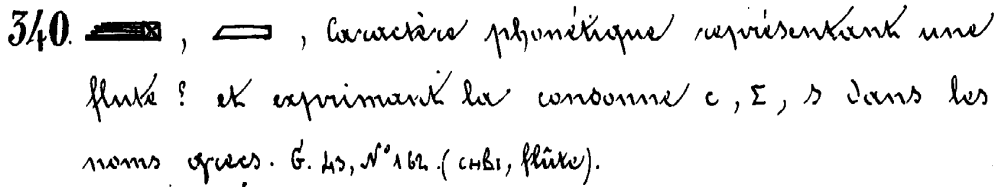 340. , , Caractère phonétique représentant une
flute ? et exprimant la consonne c, Σ, s dans les
noms grecs. G. 43, N° 162. (CHBI, flûte).